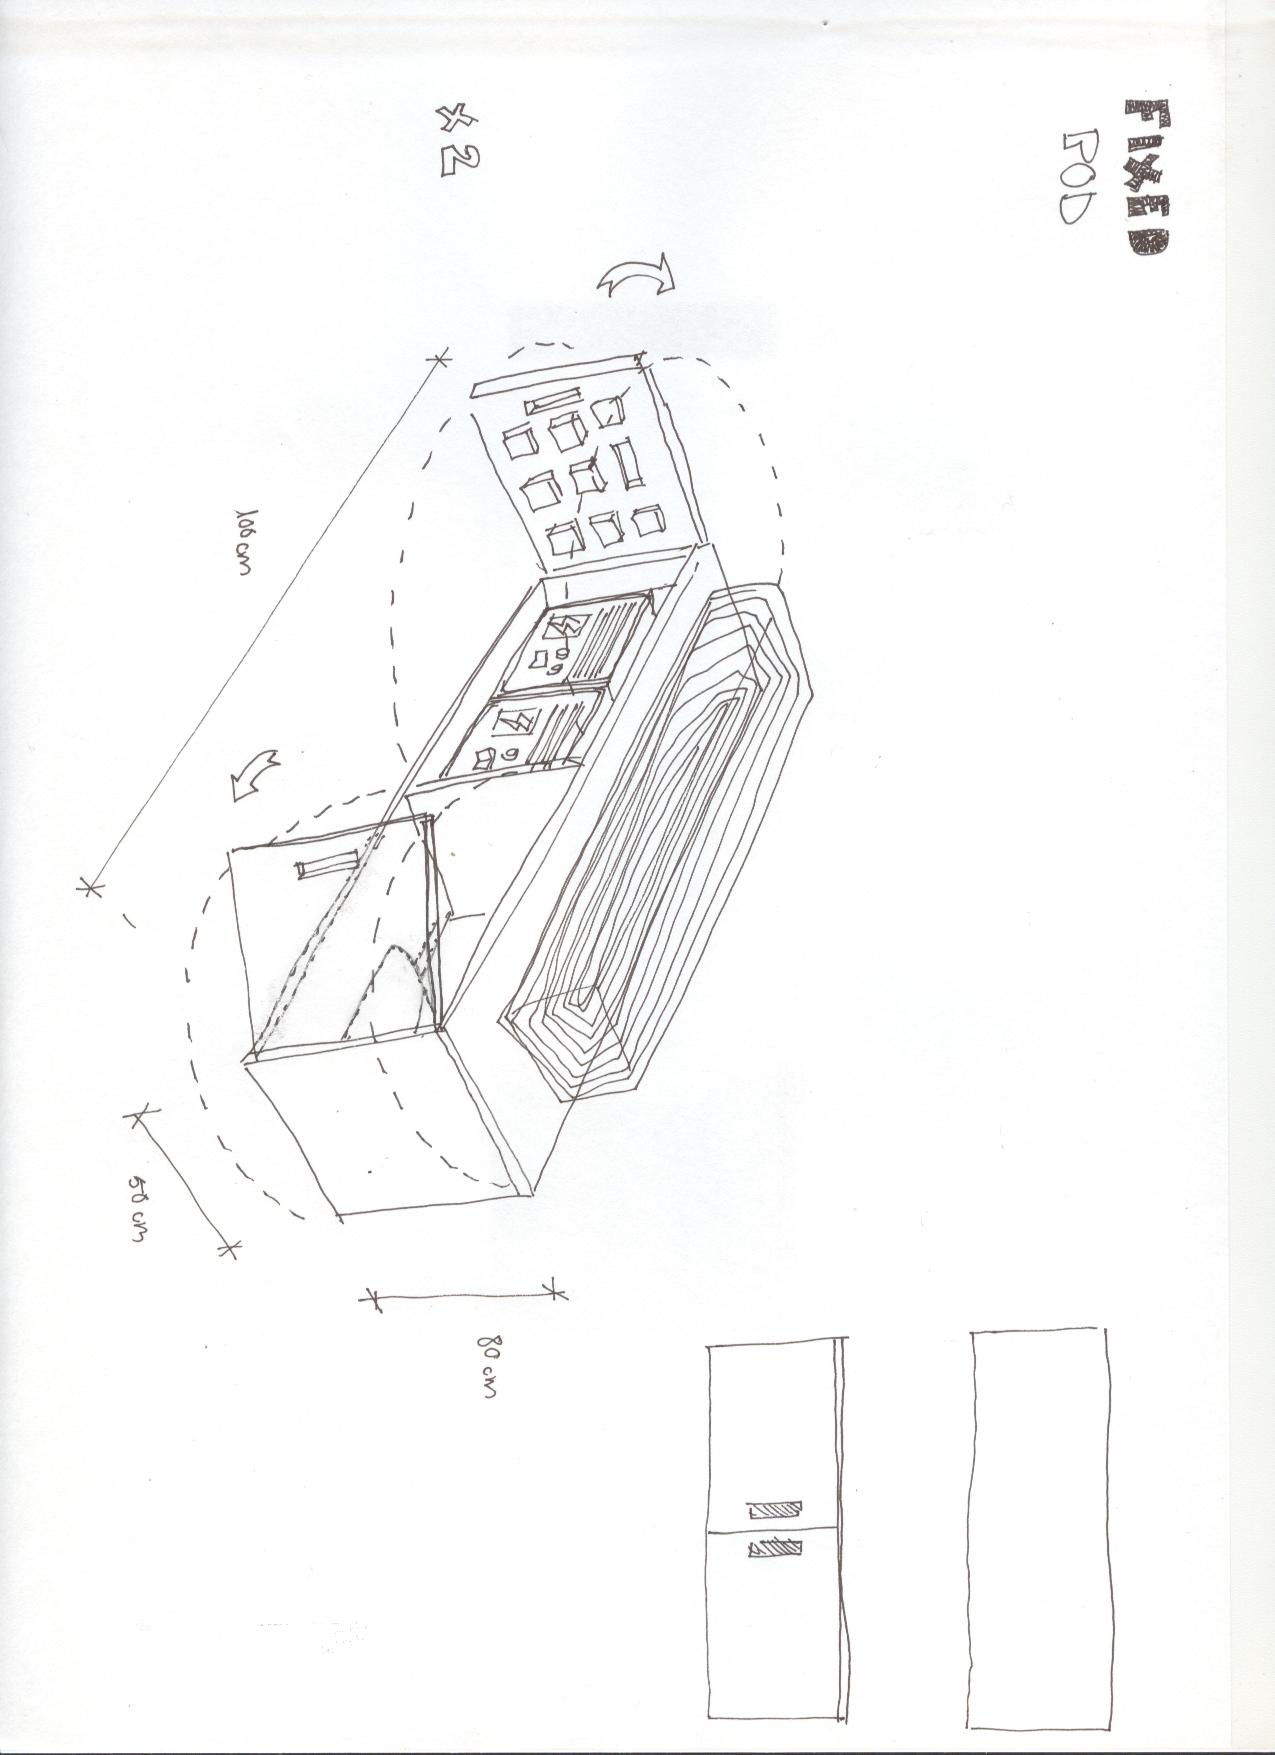 FIXED
POD
x2
100 cm
50 cm
80 cm